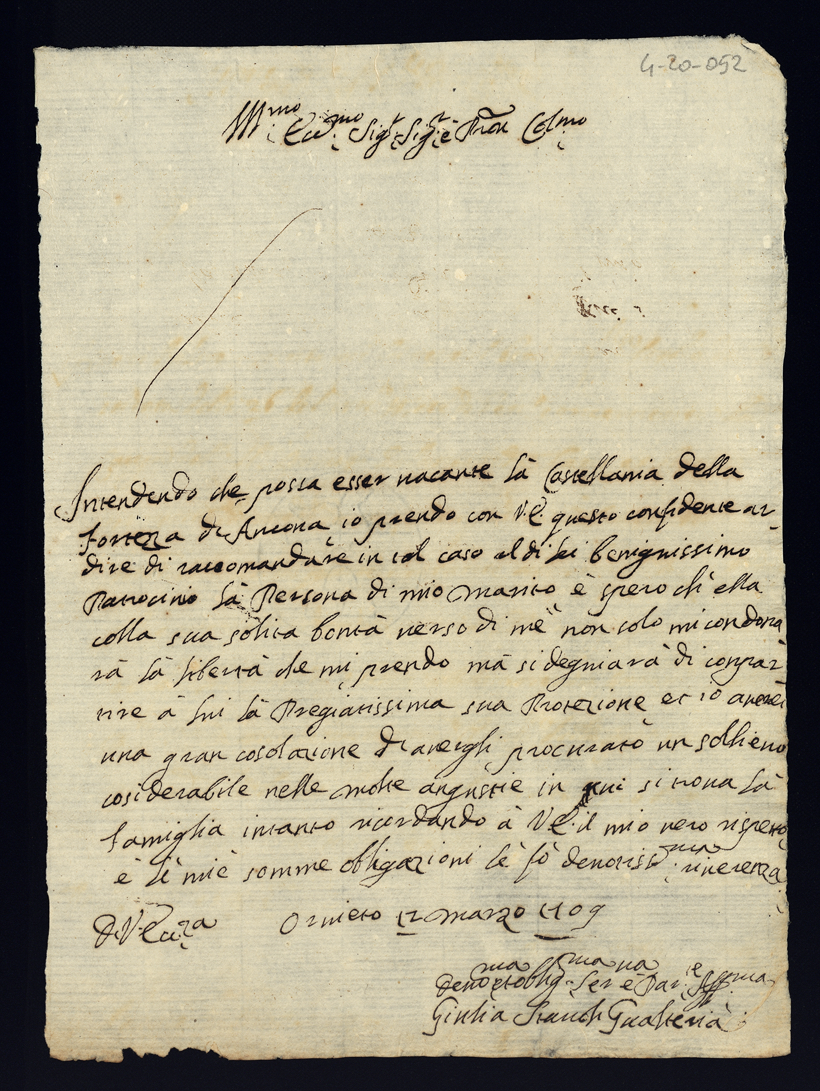 4-20-052
Ill.mo Ecc.mo Sig.r Sig.r e Pron Col.mo
Intendendo che possa esser vacante là Castellania della
fortezza di Ancona io prendo con VE questo confidente ar-
dire di raccomandare in tal caso al di lei benignissimo
Patrocinio là Persona di mio Marito è spero ch' ella
colla sua solita bontà verso di mè non solo mi condona
rà là libertà che mi prendo mà si degniarà di compar
tire à lui là Pregiatissima sua Protezione et io averei
una gran cosolazione di avergli procurato un sollievo
cosiderabile nelle molte angustie in qui si trova là
famiglia intanto ricordando à VE il mio vero rispetto
è lè miè somme obligazioni lè fò devotiss.ma riverenza
Di V Ecc.za Orvieto 12 Marzo 1709
Devo.ma Oblig.ma Ser.va è Par.e
Giulia Gualteria